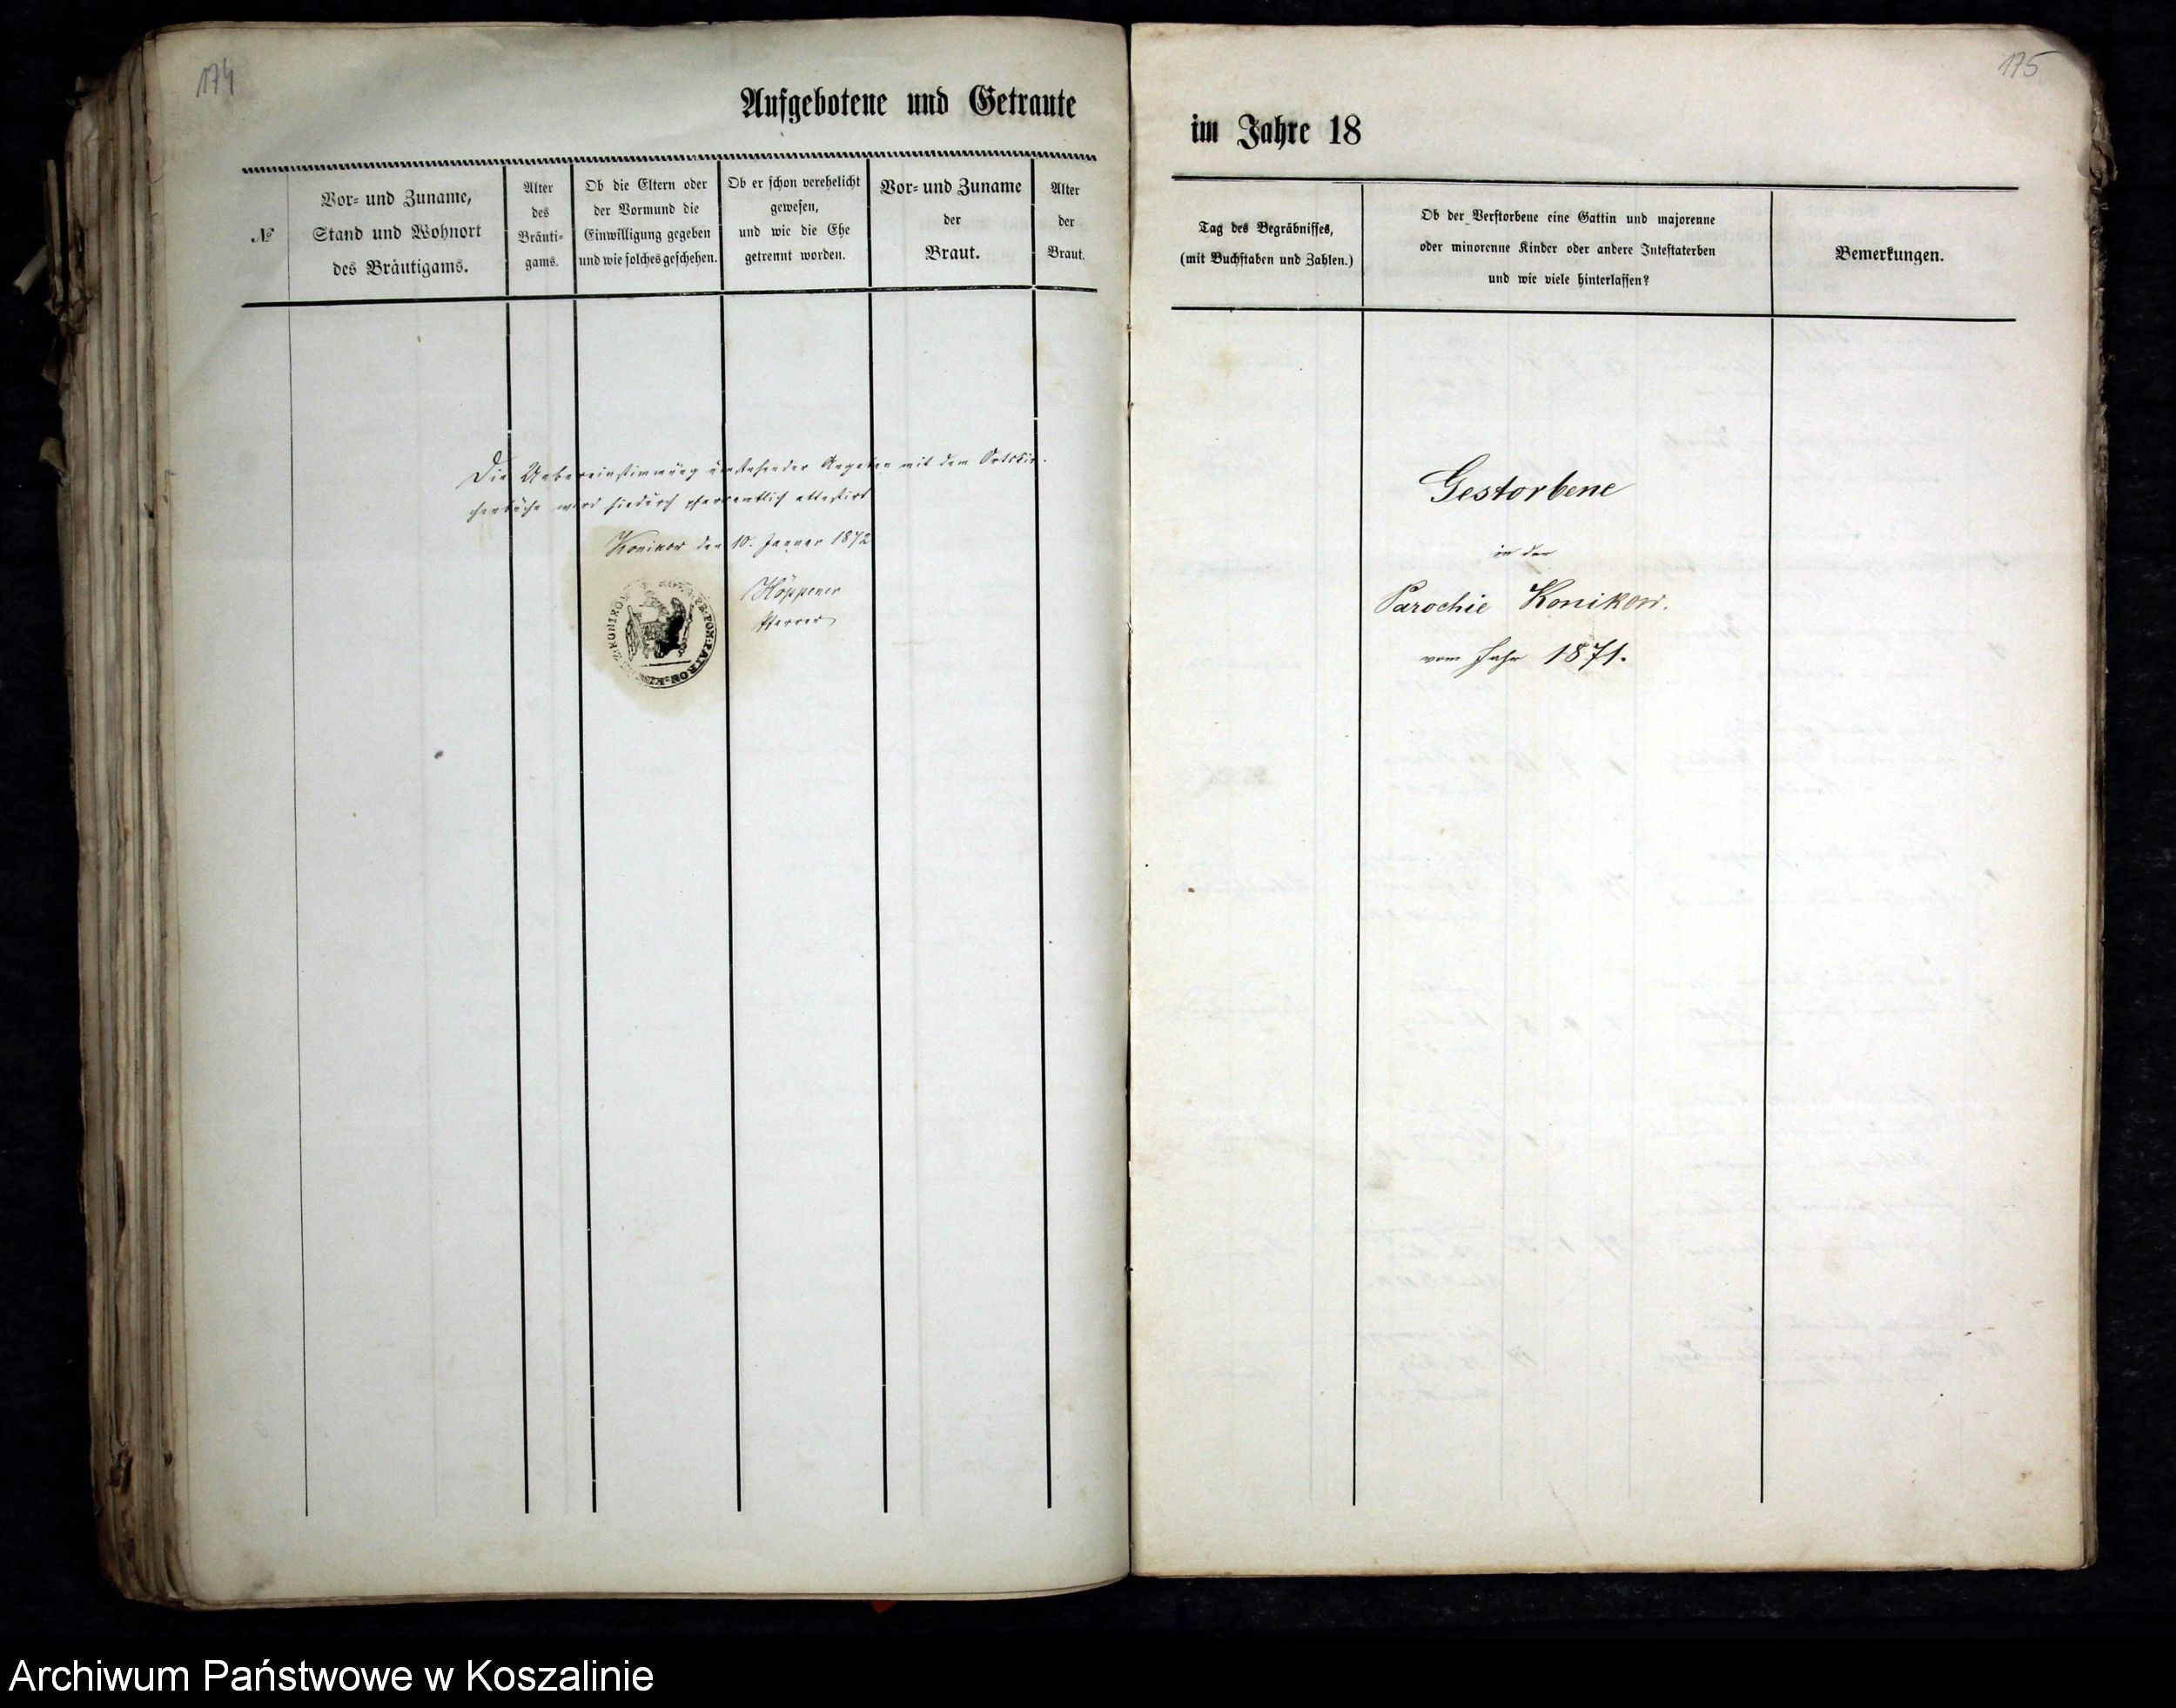 174
Aufgebotene und Getraute
№
Vor- und Zuname,
Stand und Wohnort
des Bräutigams.
Alter
des
Bräuti-
gams.
Ob die Eltern oder
der Vormund die
Einwilligung gegeben
und wie solches geschehen.
Ob er schon verehelicht
gewesen,
und wie die Ehe
getrennt worden.
Vor- und Zuname
der
Braut.
Alter
der
Braut.
Die Uebereinstimmung vorstehender Angaben mit dem Ortskir-
chenbuche wird hiedurch pfarramtlich attestirt
Konikow den 10. Januar 1872
Köppener
Pfarrer
175
im Jahre 18
Tag des Begräbnisses,
(mit Buchstaben und Zahlen.)
Ob der Verstorbene eine Gattin und majorenne
oder minorenne Kinder oder andere Intestaterben
und wie viele hinterlassen?
Bemerkungen.
Gestorbene
in der
Parochie Konikow.
vom Jahr 1871.
Archiwum Państwowe w Koszalinie